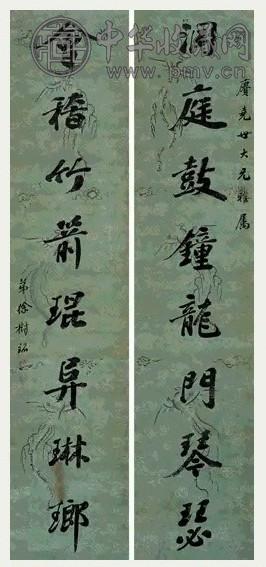 中华收藏网
www.pmv.cn
賡堯世大兄雅属
洞庭鼓鐘龍門琴瑟
會稽竹箭琨异琳瑯
弟徐樹銘